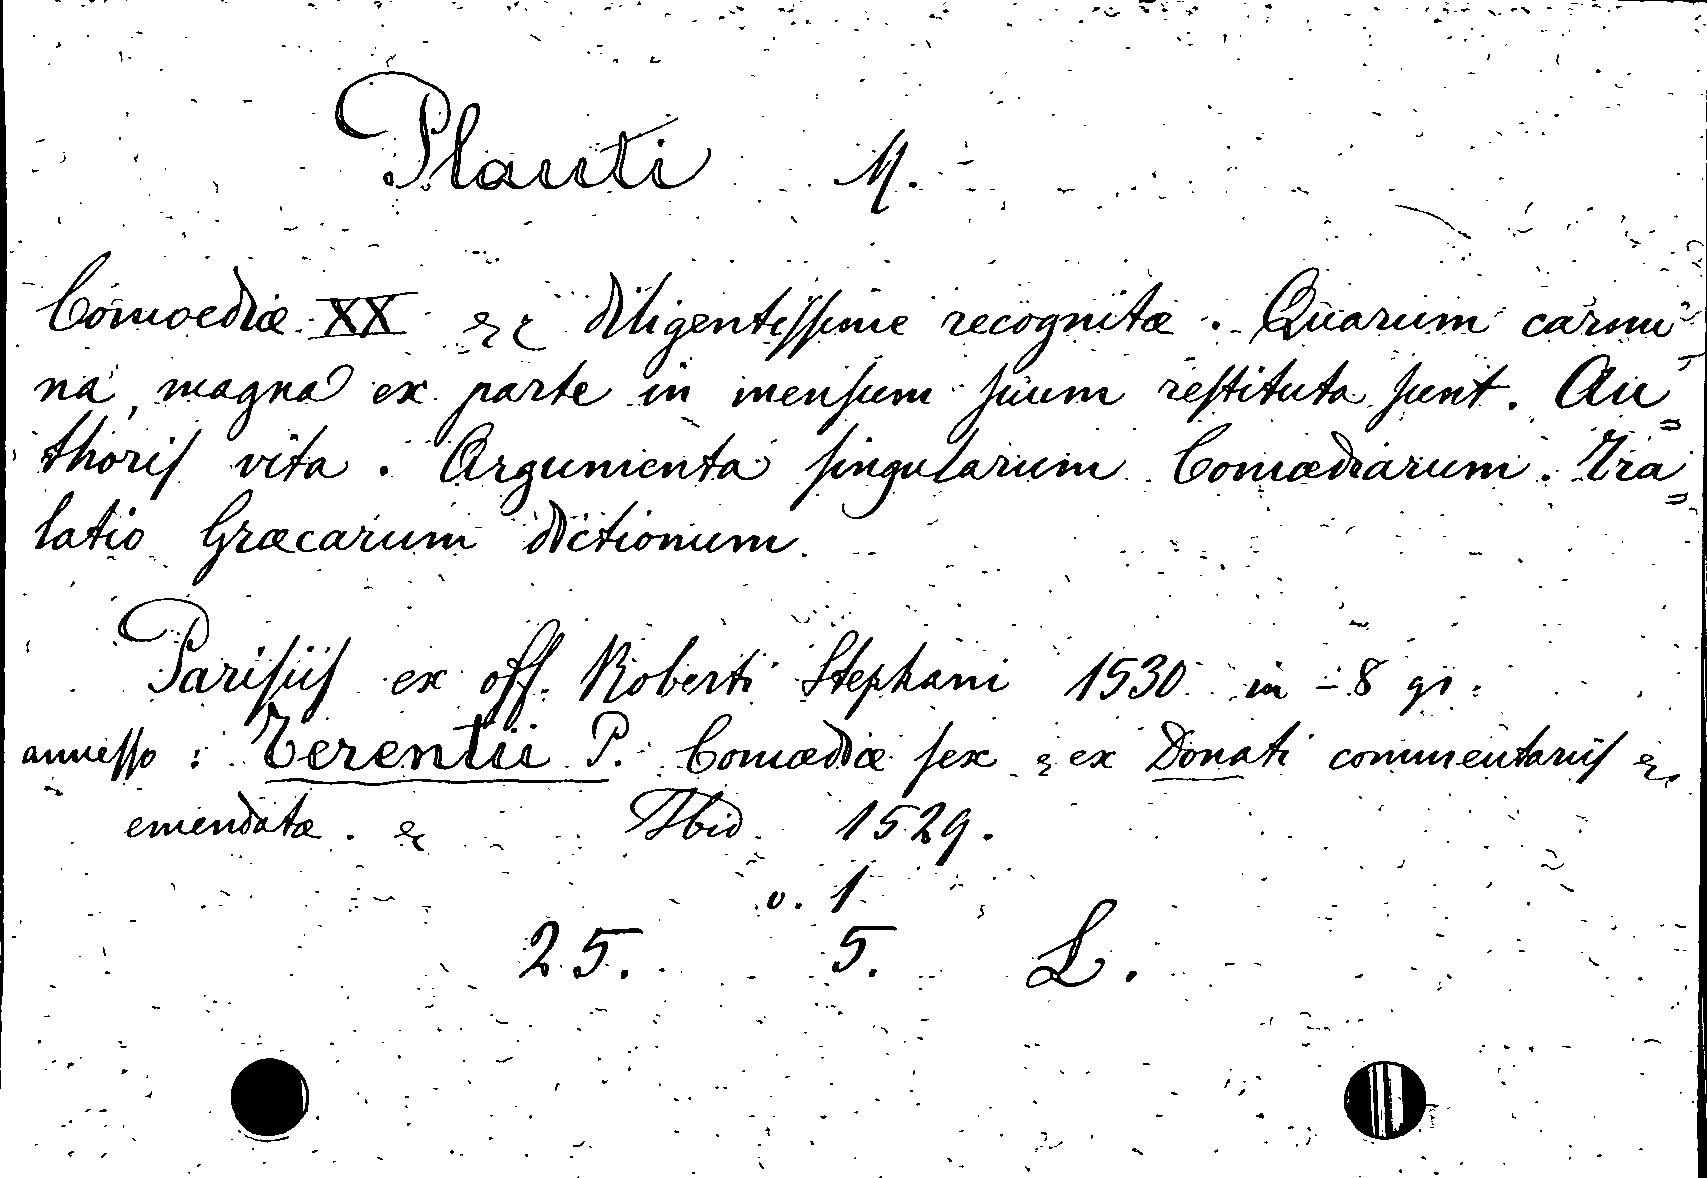 Plauti M.
Comoediæ XX &c diligentissime recognitæ. Quarum carmi-
na, magna ex parte in mensum suum restituta sunt. Au=
thoris vita. Argumenta singularum Comædiarum. Tra=
latio Græcarum dictionum.
Parisiis ex off. Roberti Stephani 1530 in-8 gr.
annesso: Terentii P. Comædiæ sex & ex Donati commentariis &
emendatæ. & Ibid. 1529.
v. 1
25. 5. L.